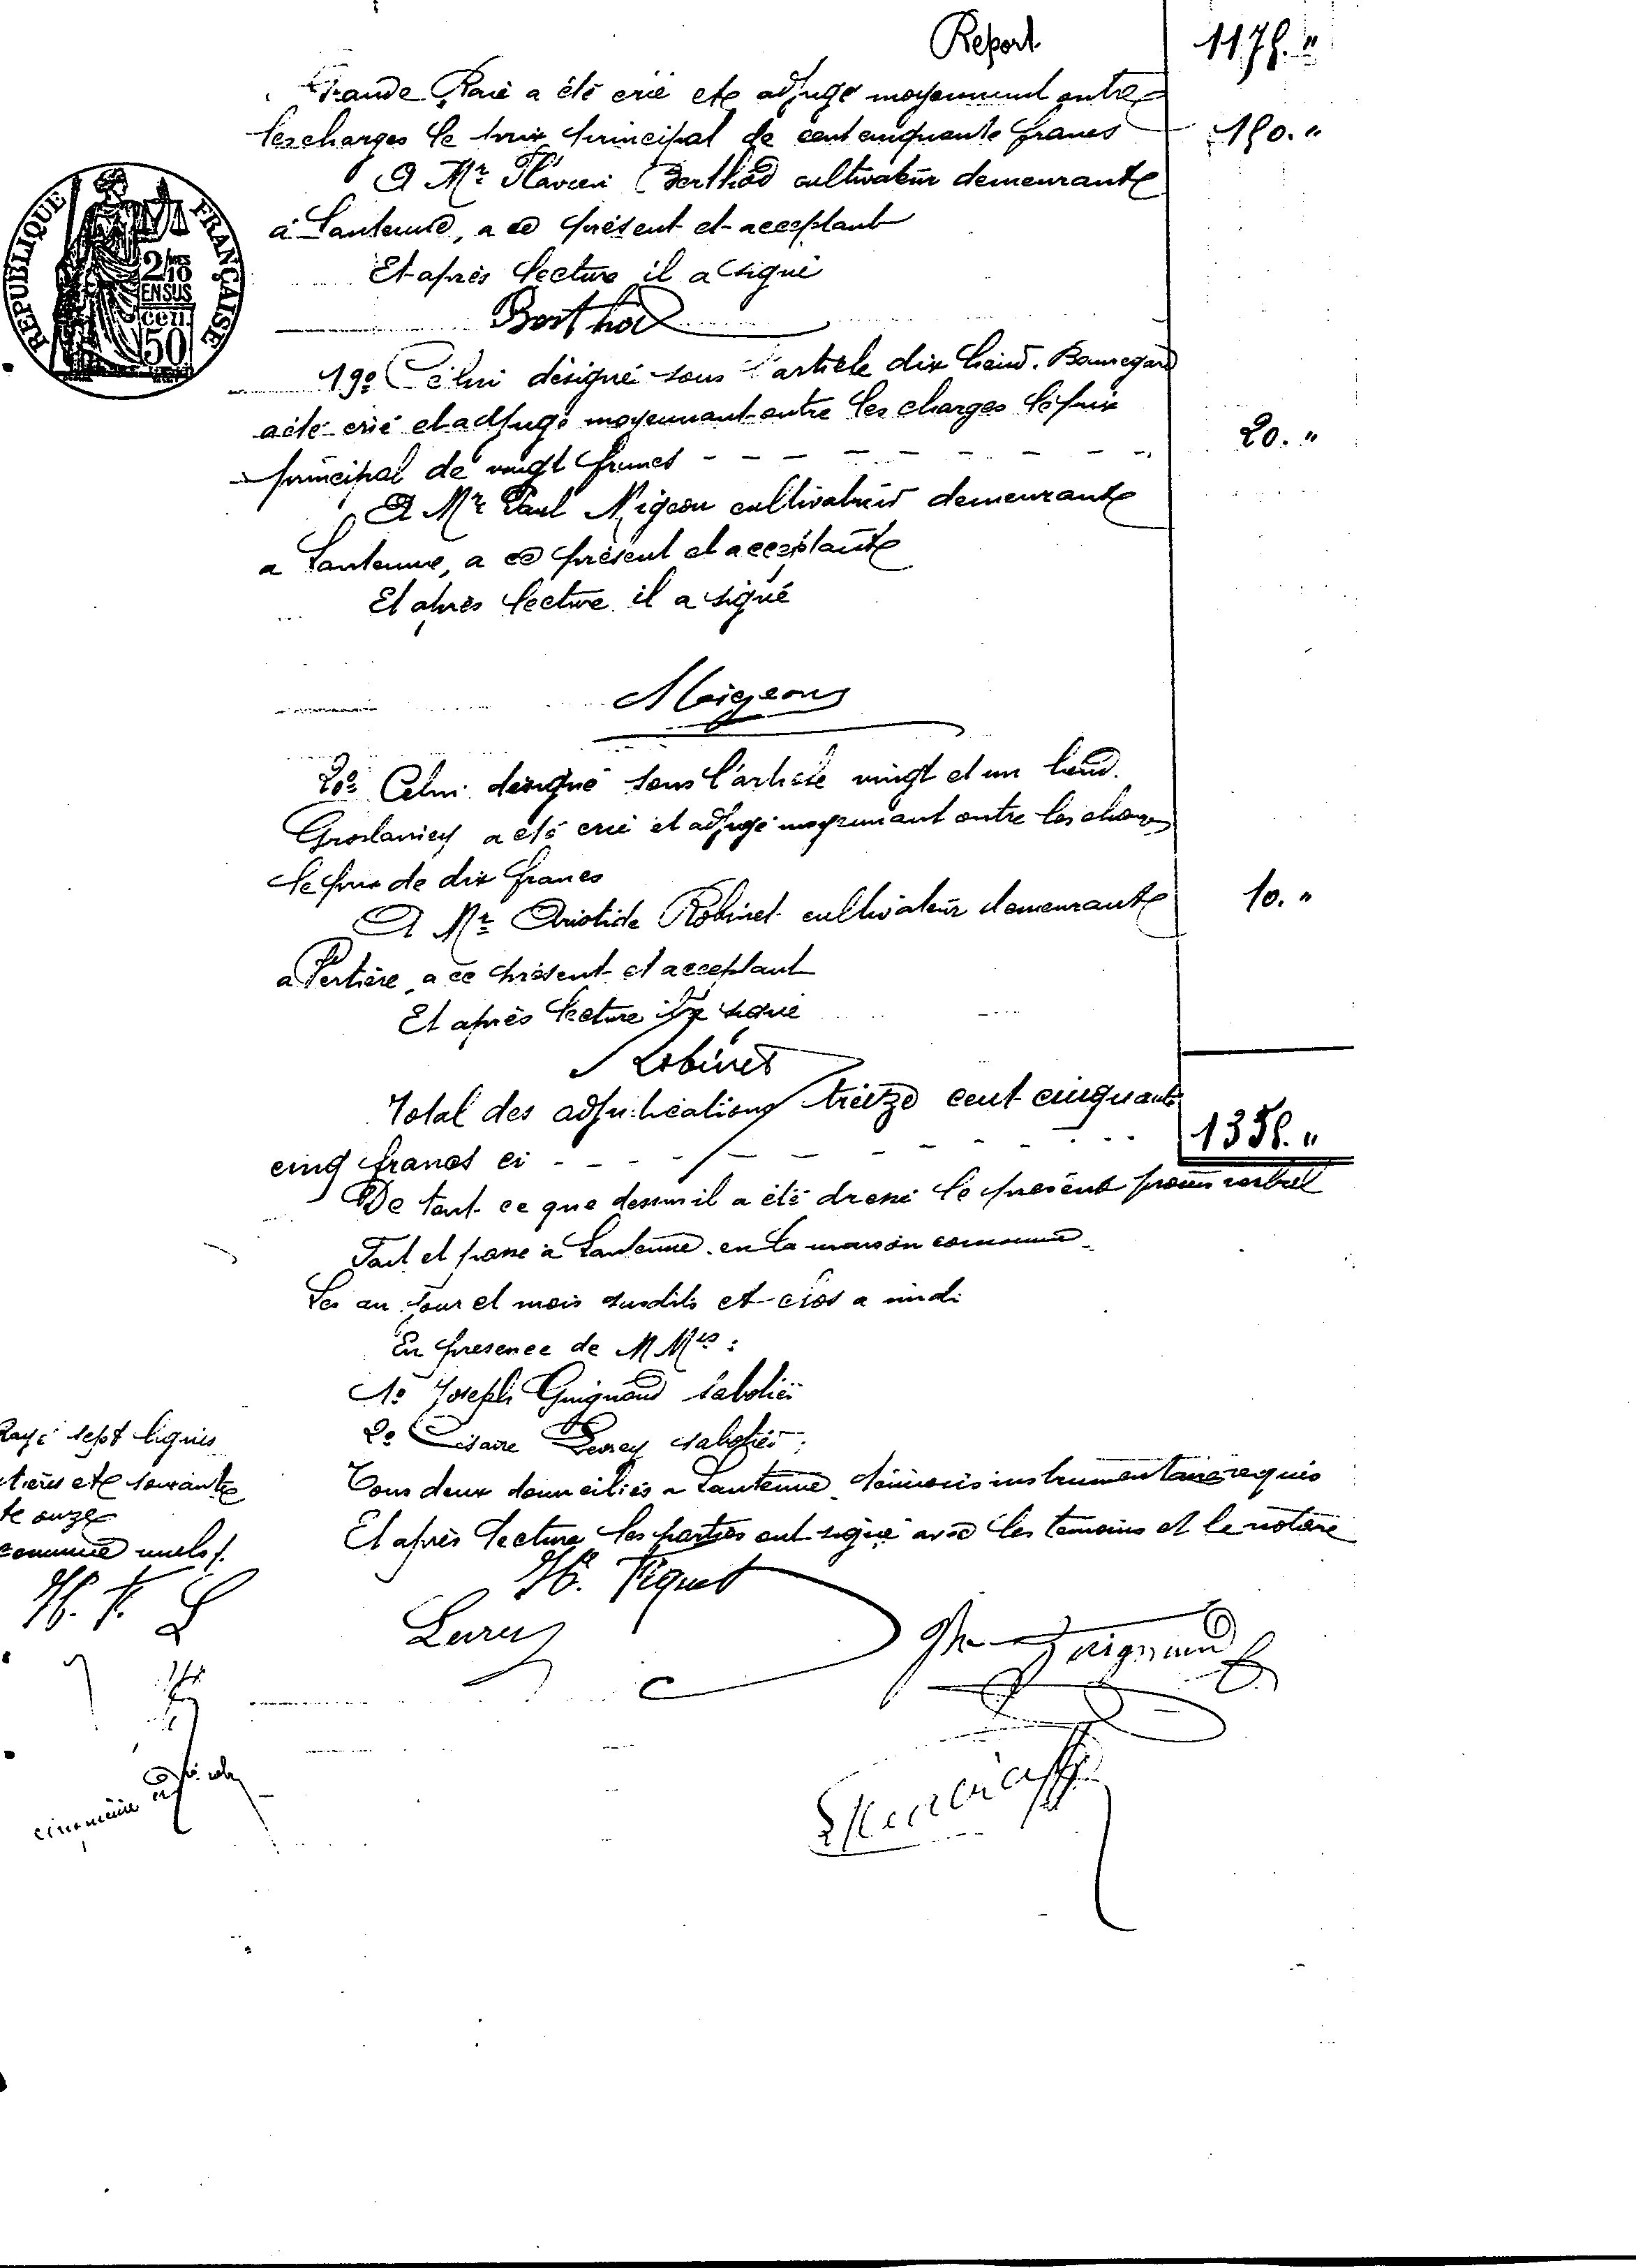 Report 1175. "
Grande Raie a été crié et adjugé moyennant outre
les charges le prix principal de cent cinquante francs 150. "
A Mr Flavien Berthod cultivateur demeurant
à Lantenne, a ce présent et acceptant
Et après lecture il a signé
RÉPUBLIQUE FRANÇAISE
2/10
EN SUS
50
Berthod
19o Celui désigné sous l'article dix lieud. Beauregard
a été crié et adjugé moyennant outre les charges le prix
principal de vingt francs 20. "
A Mr Paul Migeon cultivateur demeurant
a Lantenne, a ce présent et acceptant
Et après lecture il a signé
Migeon
20o Celui désigné sous l'article vingt et un lieud.
a été crié et adjugé moyennant outre les charges
le prix de dix francs
A Mr Aristide Robinet cultivateur demeurant 10. "
a Pertière, a ce présent et acceptant
Et après lecture il a signé
Robinet
Total des adjudications treize cent cinquante
cinq francs ci 1355. "
De tout ce que dessus il a été dressé le présent procès verbal
Fait et passé à Lantenne en la maison commune
Les an jour et mois susdits et clos a midi
En presence de M Mrs :
1o Joseph Guignard sabotier
2o Césaire Levrey sabotier ;
Tous deux domiciliés a Lantenne témoins instrumentaires requis
Et après lecture les parties ont signé avec les témoins et le notaire
Rayé sept lignes
et soixante
te onze
comme nuls /.
H. P. L
H. Piquet
Levrey
Guignard